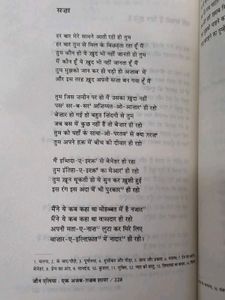 सज़ा
हर बार मेरे सामने आती रही हो तुम
हर बार तुम से मिल के बिछड़ता रहा हूँ मैं
तुम कौन हो ये ख़ुद भी नहीं जानती हो तुम
मैं कौन हूँ ये ख़ुद भी नहीं जानता हूँ मैं
तुम मुझको जान कर ही पड़ी हो अज़ाब में
और इस तरह ख़ुद अपनी सज़ा बन गया हूँ मैं
तुम जिस ज़मीन पर हो मैं उसका ख़ुदा नहीं
पस सर-ब-सर अज़िय्यत-ओ-आज़ार ही रहो
बेज़ार हो गई हो बहुत ज़िंदगी से तुम
जब बस में कुछ नहीं है तो बेज़ार ही रहो
तुम को यहाँ के साया-ओ-परतव से क्या ग़रज़
तुम अपने हक़ में बीच की दीवार ही रहो
मैं इब्तिदा-ए-इश्क़ से बेमेहर ही रहा
तुम इंतिहा-ए-इश्क़ का मेआर ही रहो
तुम ख़ून थूकती हो ये सुन कर ख़ुशी हुई
इस रंग इस अदा में भी पुरकार ही रहो
मैंने ये कब कहा था मोहब्बत में है नजात
मैंने ये कब कहा था वफ़ादार ही रहो
अपनी मता-ए-नाज़ लुटा कर मिरे लिए
बाज़ार-ए-इल्तिफ़ात में नादार ही रहो
जौन एलिया : एक अजब-ग़ज़ब शायर / 228